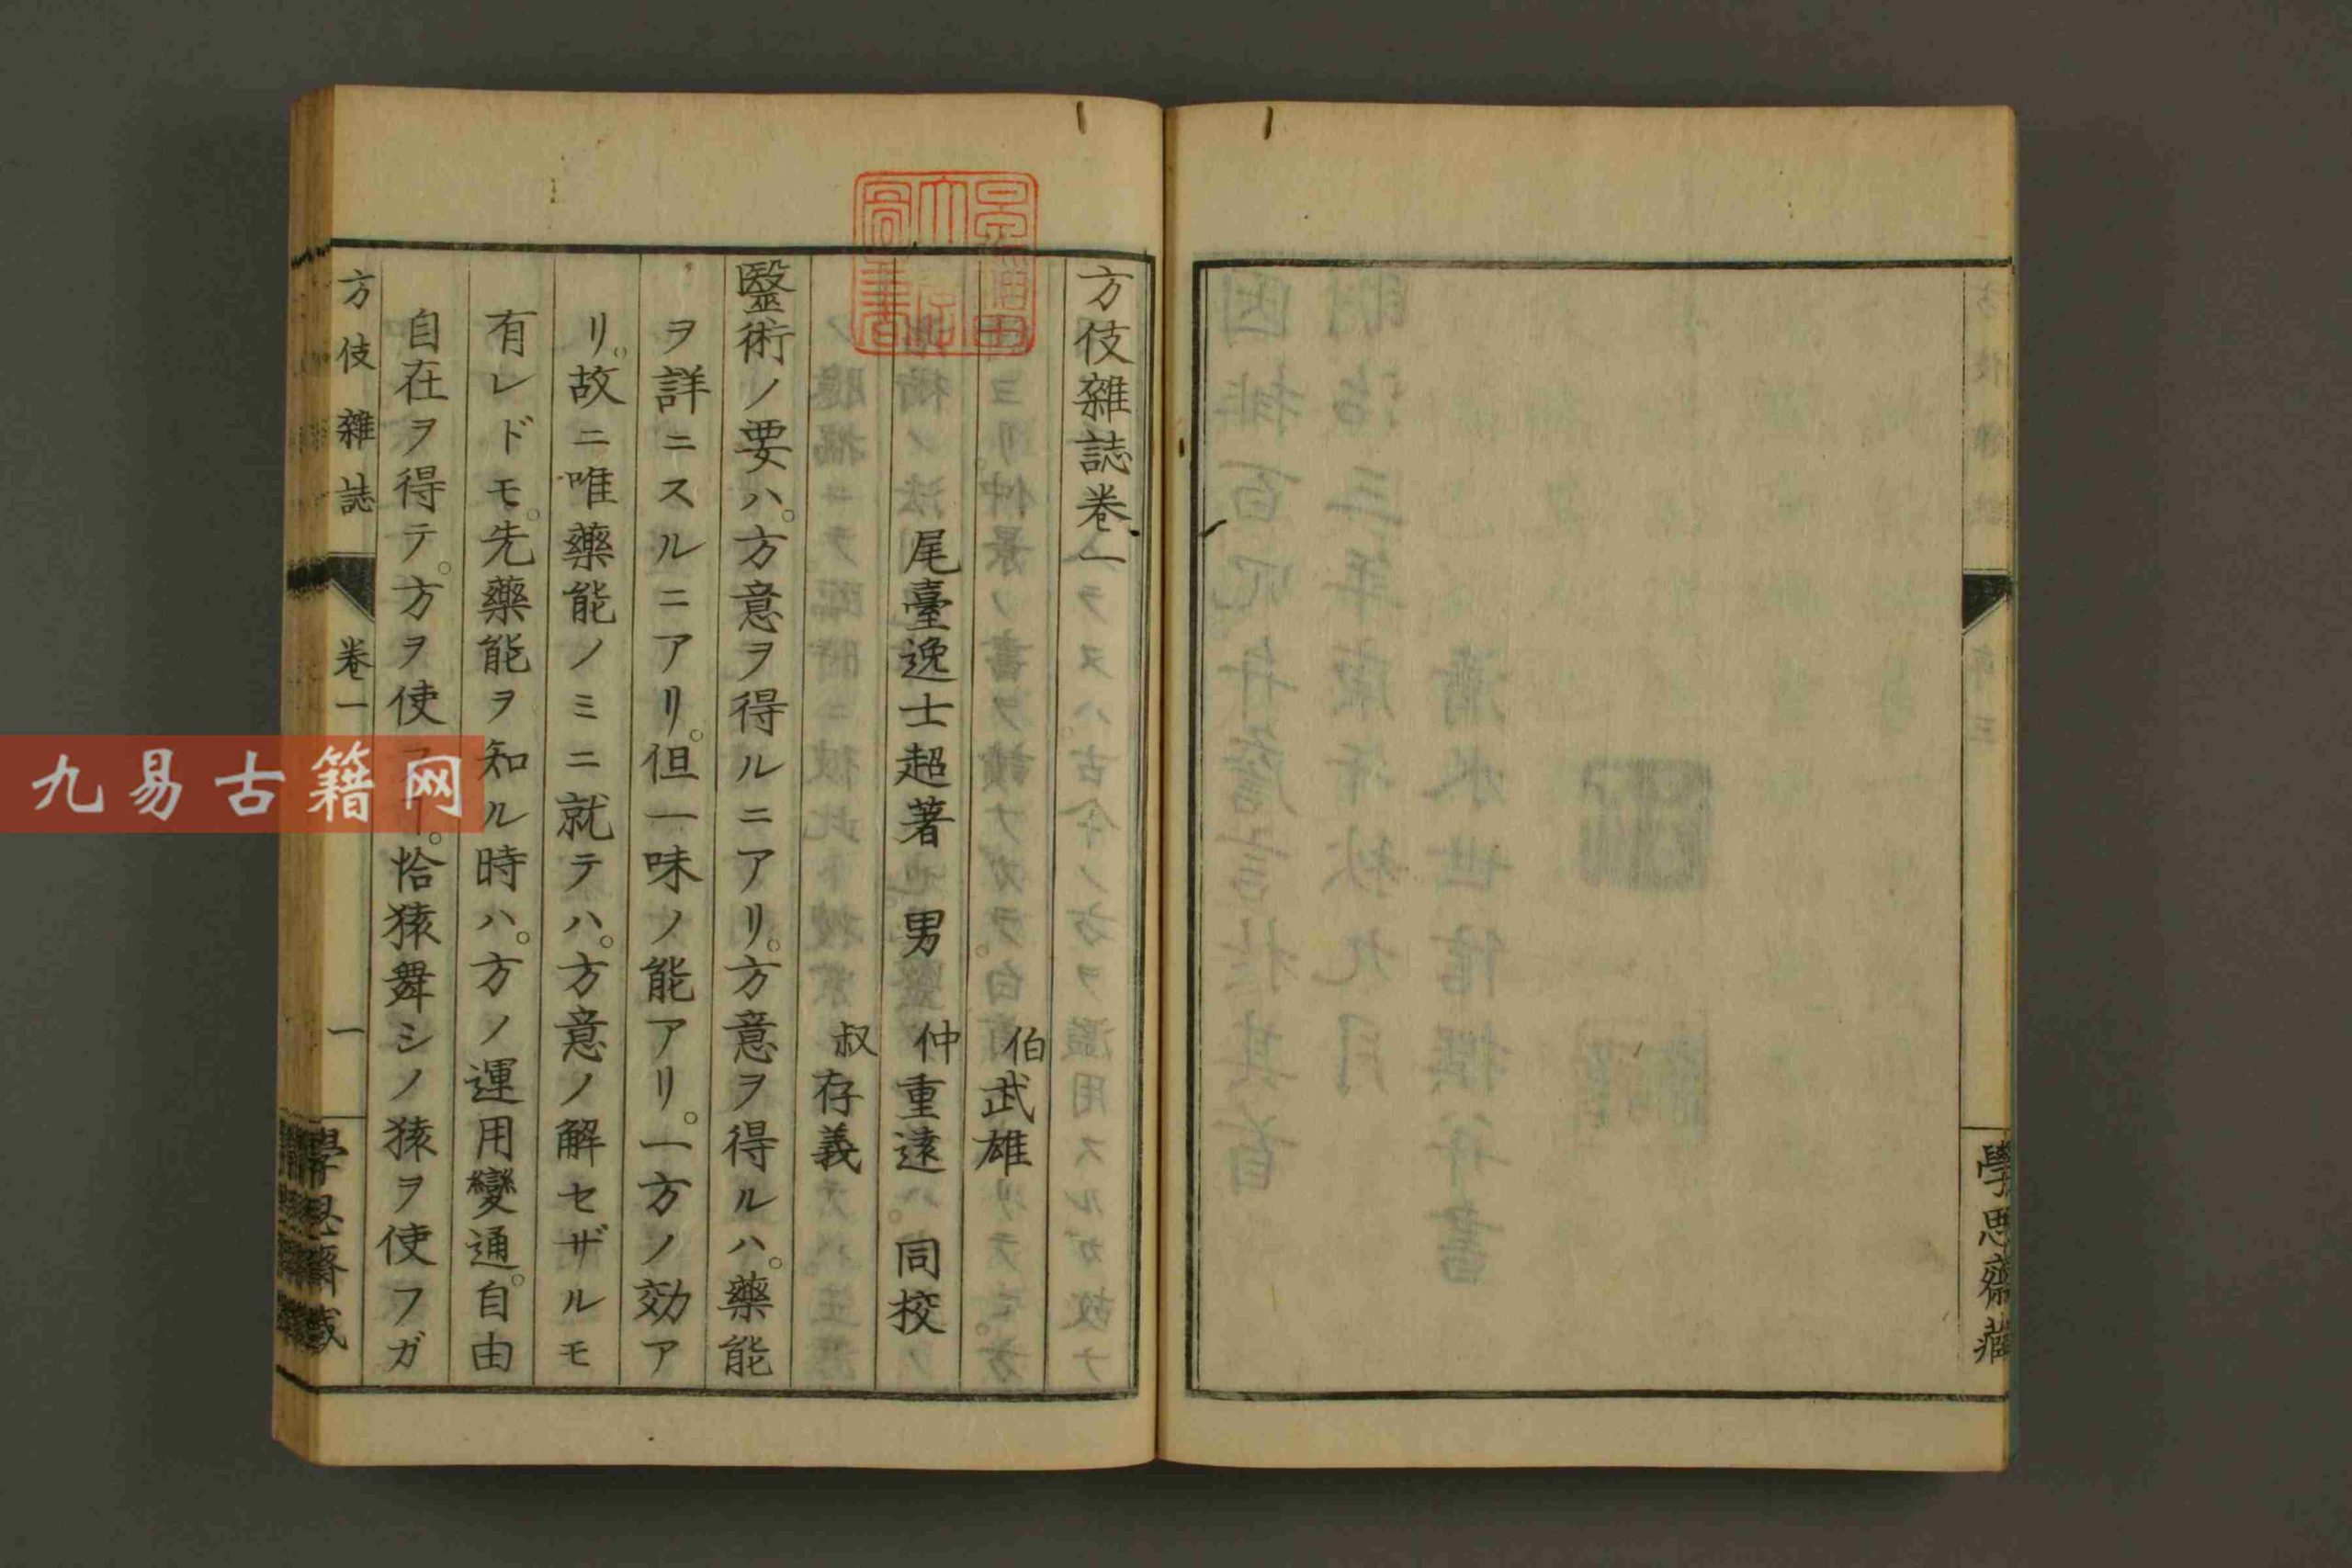 學思齋藏
方伎雜誌卷一
伯武雄
尾臺逸士超著　男　仲重遠　同挍
叔存義
醫術ノ要ハ。方意ヲ得ルニアリ。方意ヲ得ルハ。藥能
ヲ詳ニスルニアリ。但一味ノ能アリ。一方ノ効ア
リ。故ニ唯藥能ノミニ就テハ。方意ノ解セザルモ
有レドモ。先藥能ヲ知ル時ハ。方ノ運用變通。自由
自在ヲ得テ。方ヲ使
恰猿舞シノ猿ヲ使フガ
方伎雜誌　卷一　一
學思齋藏
九易古籍网